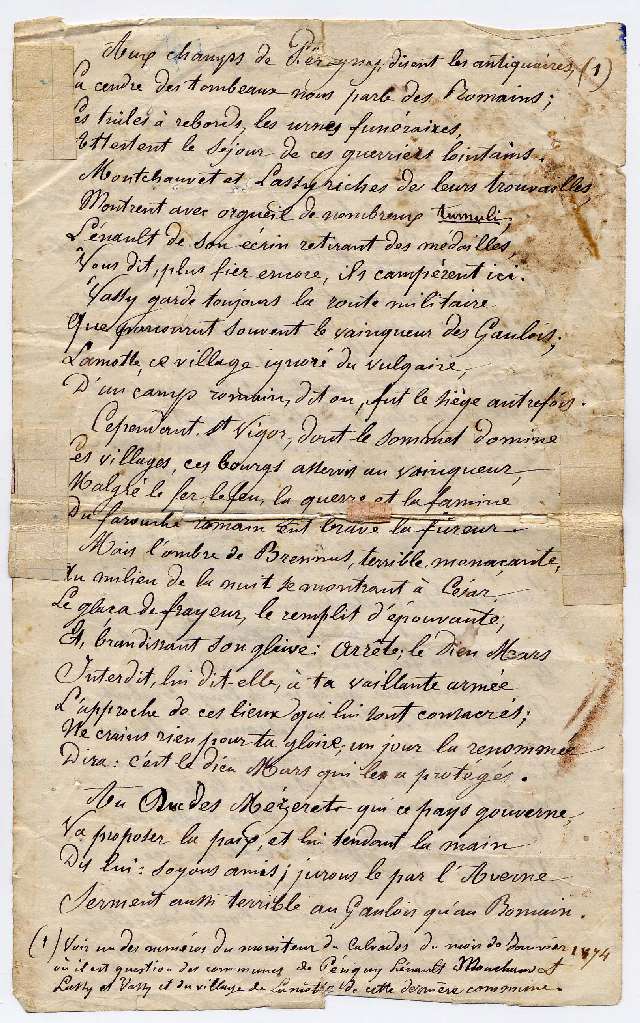 Aux champs de Périgny, disent les antiquaires, (1)
La cendre des tombeaux nous parle des Romains;
Les tuiles à rebords, les urnes funéraires,
Attestent le séjour de ces guerriers lointains.
Montchauvet et Lassy riches de leurs trouvailles,
Montrent avec orgueil de nombreux tumuli;
Lénault de son écrin retirant des médailles,
Vous dit, plus fier encore, ils campèrent ici.
Vassy garde toujours la route militaire
Que parcourut souvent le vainqueur des Gaulois;
Lamotte, ce village ignoré du vulgaire,
D'un camp romain, dit on, fut le siège autrefois.
Cependant St Vigor, dont le sommet domine
Ces villages, ces bourgs asservis au vainqueur,
Malgré le fer, le feu, la guerre et la famine
Du farouche romain eut bravé la fureur
Mais l'ombre de Brennus, terrible, menaçante,
Au milieu de la nuit se montrant à César,
Le glaça de frayeur, le remplit d'épouvante;
Et, brandissant son glaive: Arrête; le Dieu Mars
Interdit, lui dit-elle, à ta vaillante armée
L'approche de ces lieux qui lui sont consacrés;
Ne crains rien pour ta gloire, un jour la renommée
Dira: c'est le dieu Mars qui les a protégés.
Au Duc des Mézerets qui ce pays gouverne,
Va proposer la paix, et lui tendant la main
Dis lui: soyons amis; jurons le par l'Averne
Serment aussi terrible au Gaulois qu'au Romain.
(1) Voir un des numéros du moniteur du Calvados du mois de Janvier 1874
où il est question des communes de Périgny Lénault Montchauvet
Lassy et Vassy et du village de Lamotte de cette dernière commune.